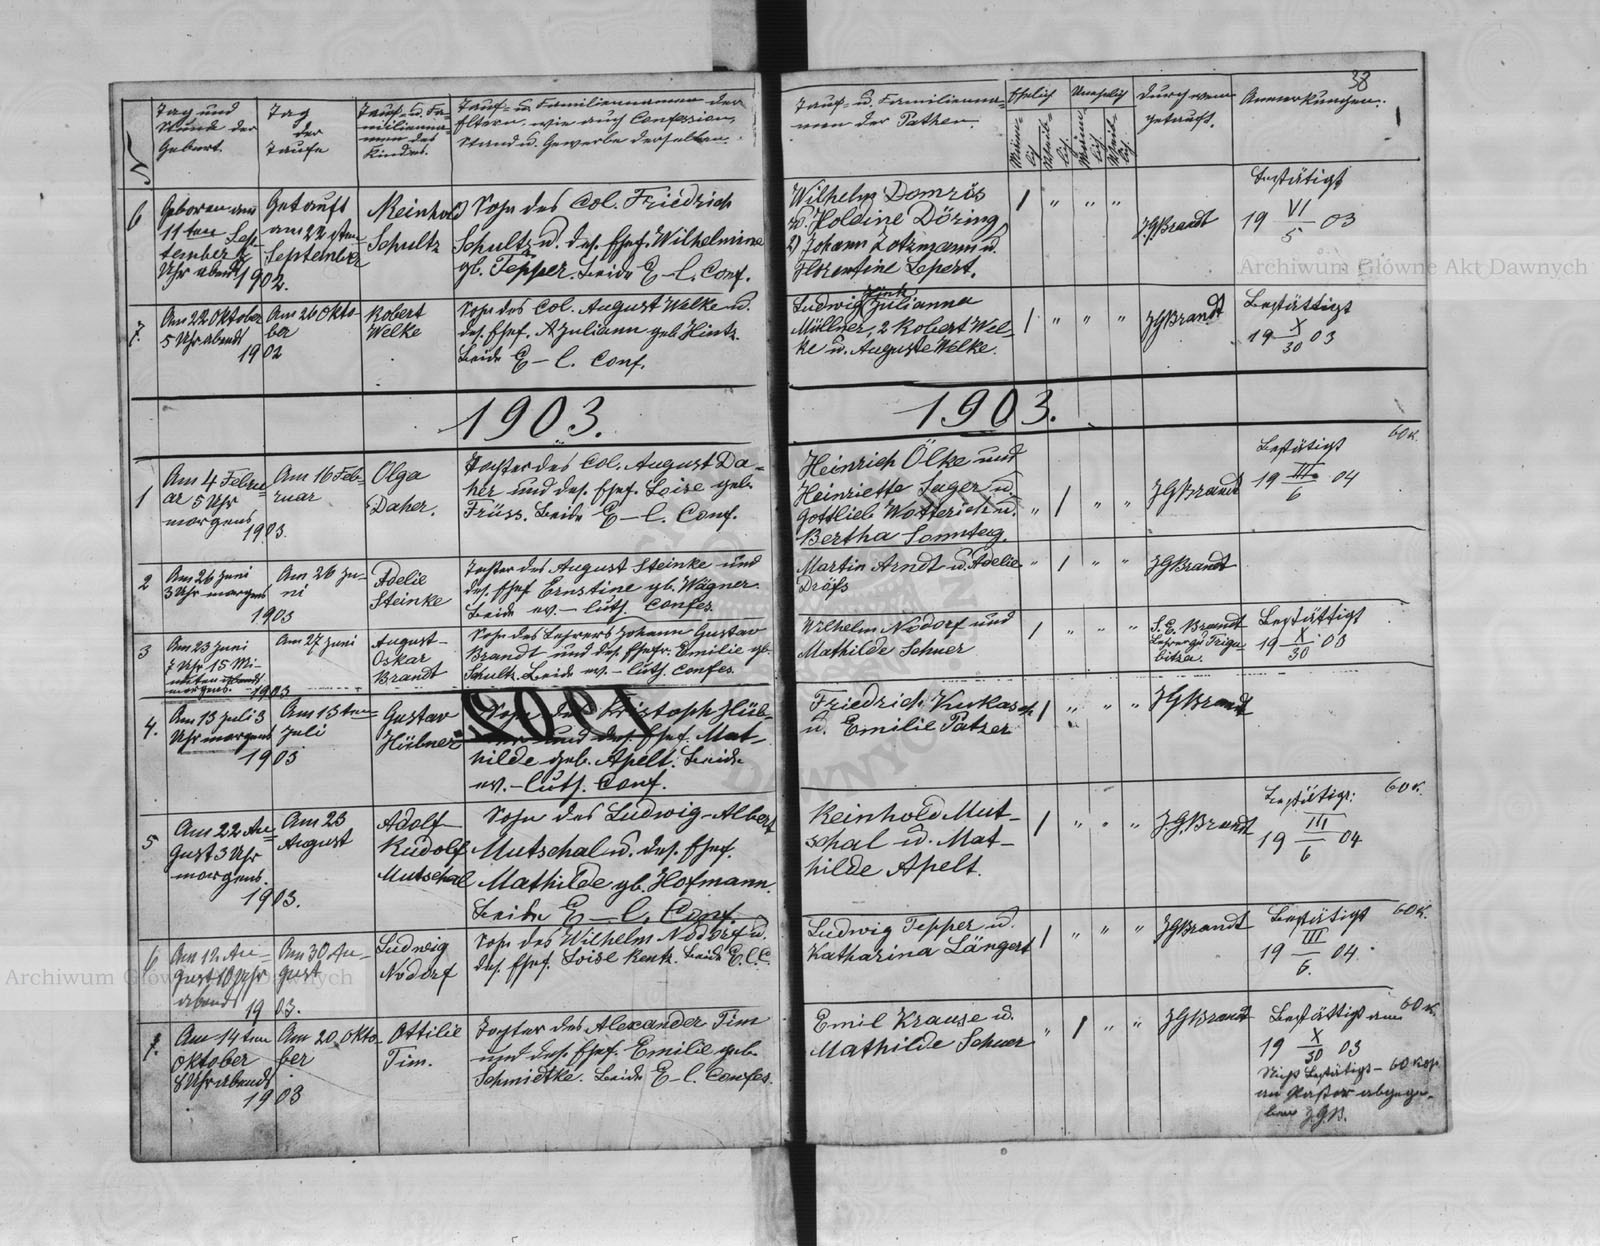 38
N
Tag und
Stunde der
Geburt.
Tag
der
Taufe
Tauf- u. Fa-
milienna-
men des
Kindes.
Tauf- u. Familiennamen der
Eltern, wie auch Confession,
Stand u. Gewerbe derselben.
Tauf- u. Familienna-
men der Pathen.
Ehelich
Unehelich
Männ-
lich
Weib-
lich
Männ-
lich
Weib-
lich
Durch wem
getauft.
Anmerkungen.
6
Geboren am
11ten Sep-
tember
Uhr abends
1902.
Getauft
am 22sten
September
Reinhold
Schultz
Sohn des Col. Friedrich
Schultz u. des. Ehef. Wilhelmine
gb. Tepper. Beide E-l. Conf.
Wilhelm Domrös
u. Holdine Döring,
2) Johann Lotzmann u.
Florentine Lepert.
1 " " "
J.G. Brandt
Bestätigt
19 VI/5 03
7.
Am 22 Oktober
5 Uhr abends
1902
Am 26 Okto-
ber
Robert
Welke
Sohn des Col. August Welke u.
des. Ehef. Juliann geb. Hintz.
Beide E-l. Conf.
Ludwig Julianna
Müllner, 2 Robert Wel-
ke u. Auguste Welke.
1 " " "
JG Brandt
Bestättigt
19 X/30 03
1903.
1903.
1
Am 4 Febru-
ar 5 Uhr
morgens
1903.
Am 16 Feb-
ruar
Olga
Daher.
Tochter des Col. August Da-
her und des. Ehef. Loise geb.
Früss. Beide E-l. Conf.
Heinrich Ölke und
Heinriette Jager u.
Gottlieb Wotterich u.
Bertha Sonntag.
" 1 " "
JG Brandt
Bestätigt
60 K.
19 III/6 04
2
Am 26 Juni
3 Uhr morgens
1903
Am 26 Ju-
ni
Adelie
Steinke
Tochter des August Steinke und
des. Ehef. Ernstine gb. Wagner.
Beide ev.-luth. Confes.
Martin Arndt u. Adelie
Dräfs
" 1 " "
JG Brandt
3
Am 23 Juni
7 Uhr 15 Mi-
nuten abends
morgens. 1903
Am 27 Juni
August-
Oskar
Brandt
Sohn des Lehrers Johann Gustav
Brandt und des. Ehefr. Emilie gb.
Schultz. Beide ev.-luth. Confes.
Wilhelm Nodorf und
Mathilde Scheer
1 " " "
S. E. Brandt
Bestättigt
19 X/30 03
4.
Am 13 Juli 3
Uhr morgens
1903
Am 13ten
Juli
Gustav
Hübner
Sohn des Kristoph Hüb-
ner und des. Ehef. Mat-
hilde geb. Apelt. Beide
ev.-luth. Conf.
1902
Friedrich Kukasch
u. Emilie Patzer
1 " " "
JG Brandt
5
Am 22 Au-
gust 3 Uhr
morgens.
1903.
Am 23
August
Adolf
Rudolf
Mutschal
Sohn des Ludwig-Albert
Mutschal u. des. Ehef.
Mathilde gb. Hofmann.
Beide E-l. Conf.
Reinhold Mut-
schal u. Mat-
hilde Apelt.
1 " " "
JG Brandt
Bestätigt:
60 K.
19 III/6 04
6
Am 12 Au-
gust 10 Uhr
abends
1903.
Am 30 Au-
gust
Ludwig
Nodorf
Sohn des Wilhelm Nodorf u.
des. Ehef. Loise Rentz. Beide E.l.C.
Ludwig Tepper u.
Katharina Längert
1 " " "
JG Brandt
Bestätigt
60 K.
19 III/6. 04.
7.
Am 14ten
Oktober
8 Uhr abends
1903
Am 20 Okto-
ber
Ottilie
Tim.
Tochter des Alexander Tim
und des. Ehef. Emilie geb.
Schmidtke. Beide E-l. Confes.
Emil Krause u.
Mathilde Scheer
" 1 " "
JG Brandt
Bestättigt am
60 K.
19 X/30 03
Nicht bestätigt - 60 Kop.
an Pastor abgege-
ben J.G.B.
Archiwum Główne Akt Dawnych
Archiwum Główne Akt Dawnych